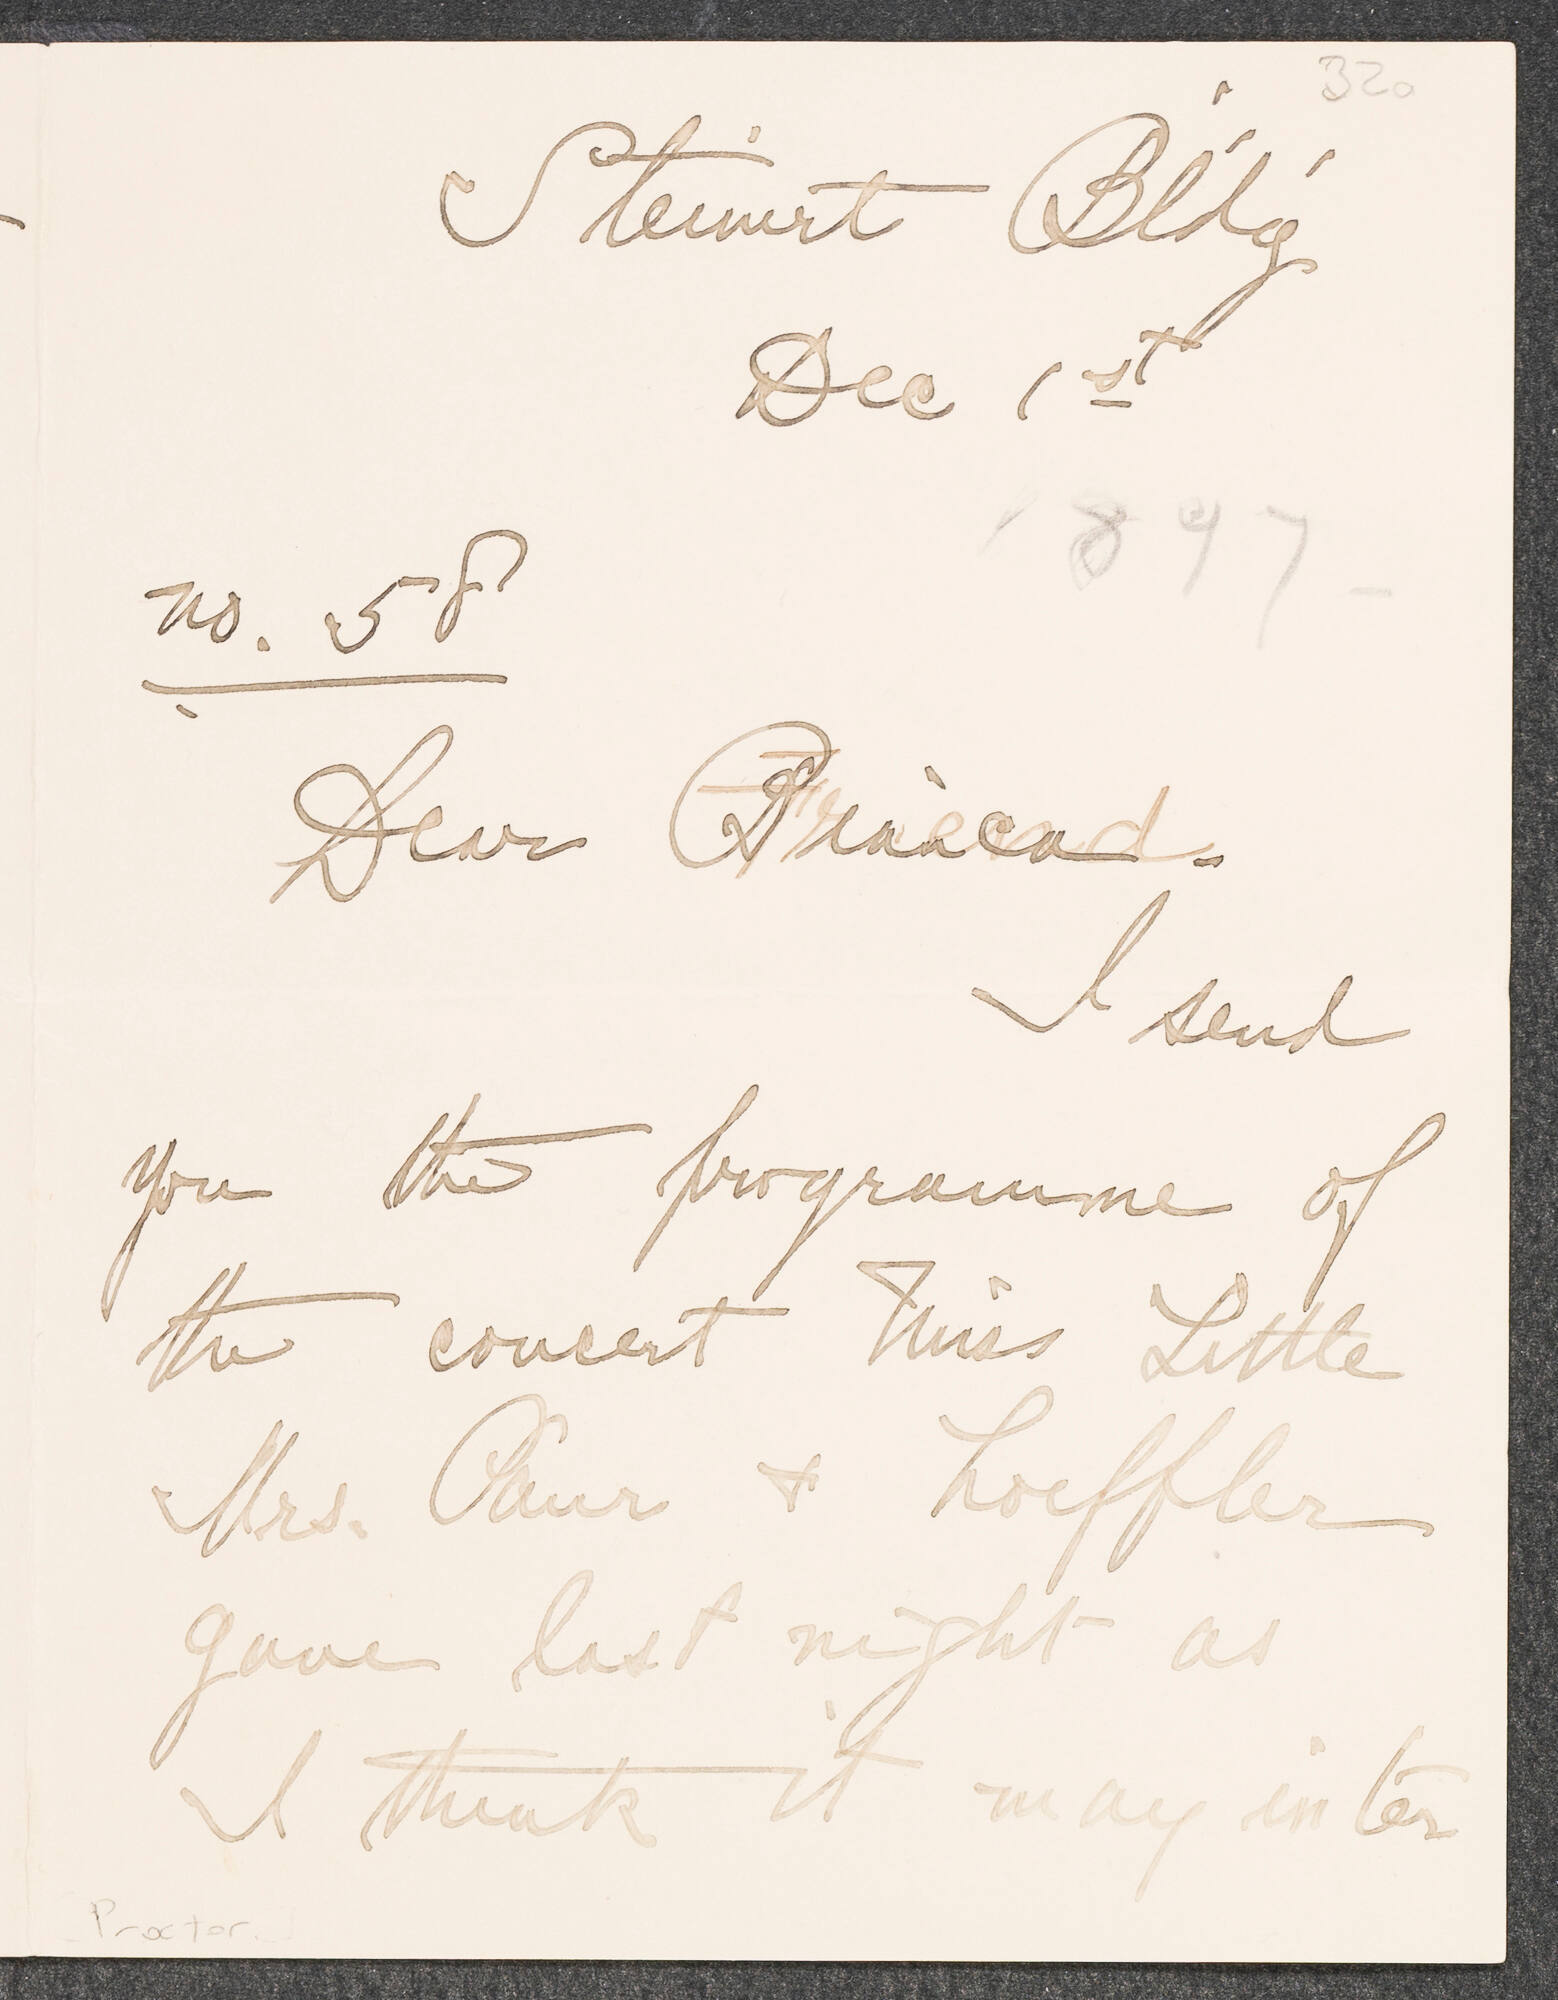 32a
Steinert Bld'g
Dec 1st
1897-
no. 58
Dear
I send
you the programme of
the concert Miss Little
Mrs. Paur + Loeffler
gave last night as
I think it may inter
[Proctor]